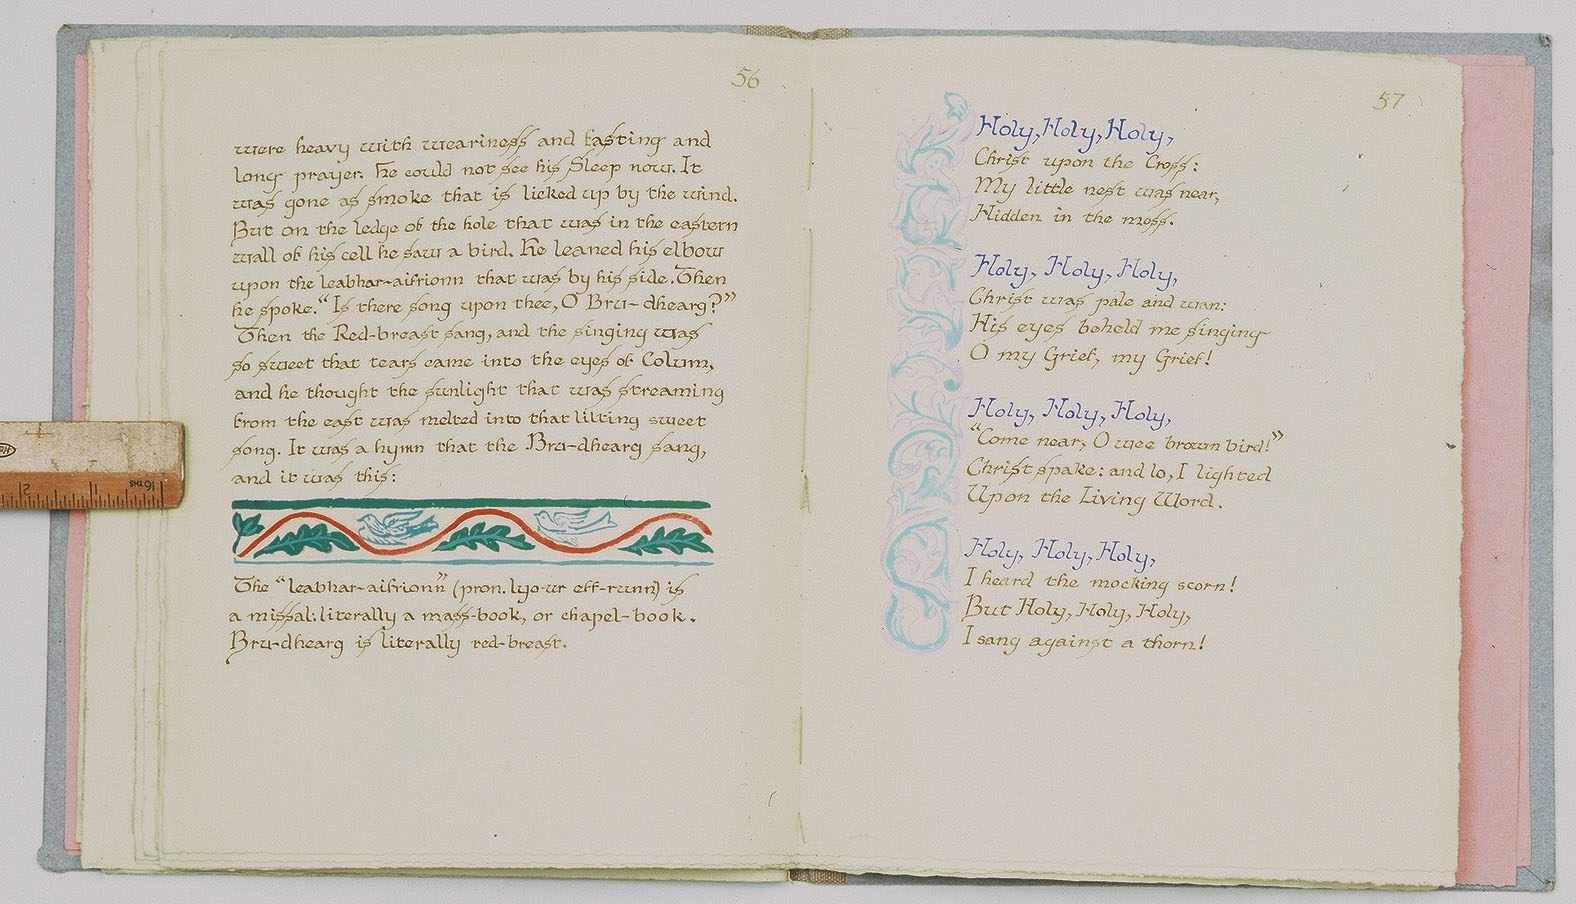 56
were heavy with weariness and fasting and
long prayer. He could not see his Sleep now. It
was gone as smoke that is licked up by the wind.
But on the ledge of the hole that was in the eastern
wall of his cell he saw a bird. He leaned his elbow
upon the leabhar-aifrionn that was by his side. Then
he spoke. “Is there song upon thee, O Bru-dhearg?”
Then the Red-breast sang, and the singing was
so sweet that tears came into the eyes of Colum,
and he thought the sunlight that was streaming
from the east was melted into that lilting sweet
song. It was a hymn that the Bru-dhearg sang,
and it was this:
The “leabhar-aifrionn” (pron. lyo-ur eff-runn) is
a missal: literally a mass-book, or chapel-book.
Bru-dhearg is literally red-breast.
57
Holy, Holy, Holy,
Christ upon the Cross:
My little nest was near,
Hidden in the moss.
Holy, Holy, Holy,
Christ was pale and wan:
His eyes beheld me singing
O my Grief, my Grief!
Holy, Holy, Holy,
“Come near, O wee brown bird!”
Christ spake: and lo, I lighted
Upon the Living Word.
Holy, Holy, Holy,
I heard the mocking scorn!
But Holy, Holy, Holy,
I sang against a thorn!
2 1 16THS